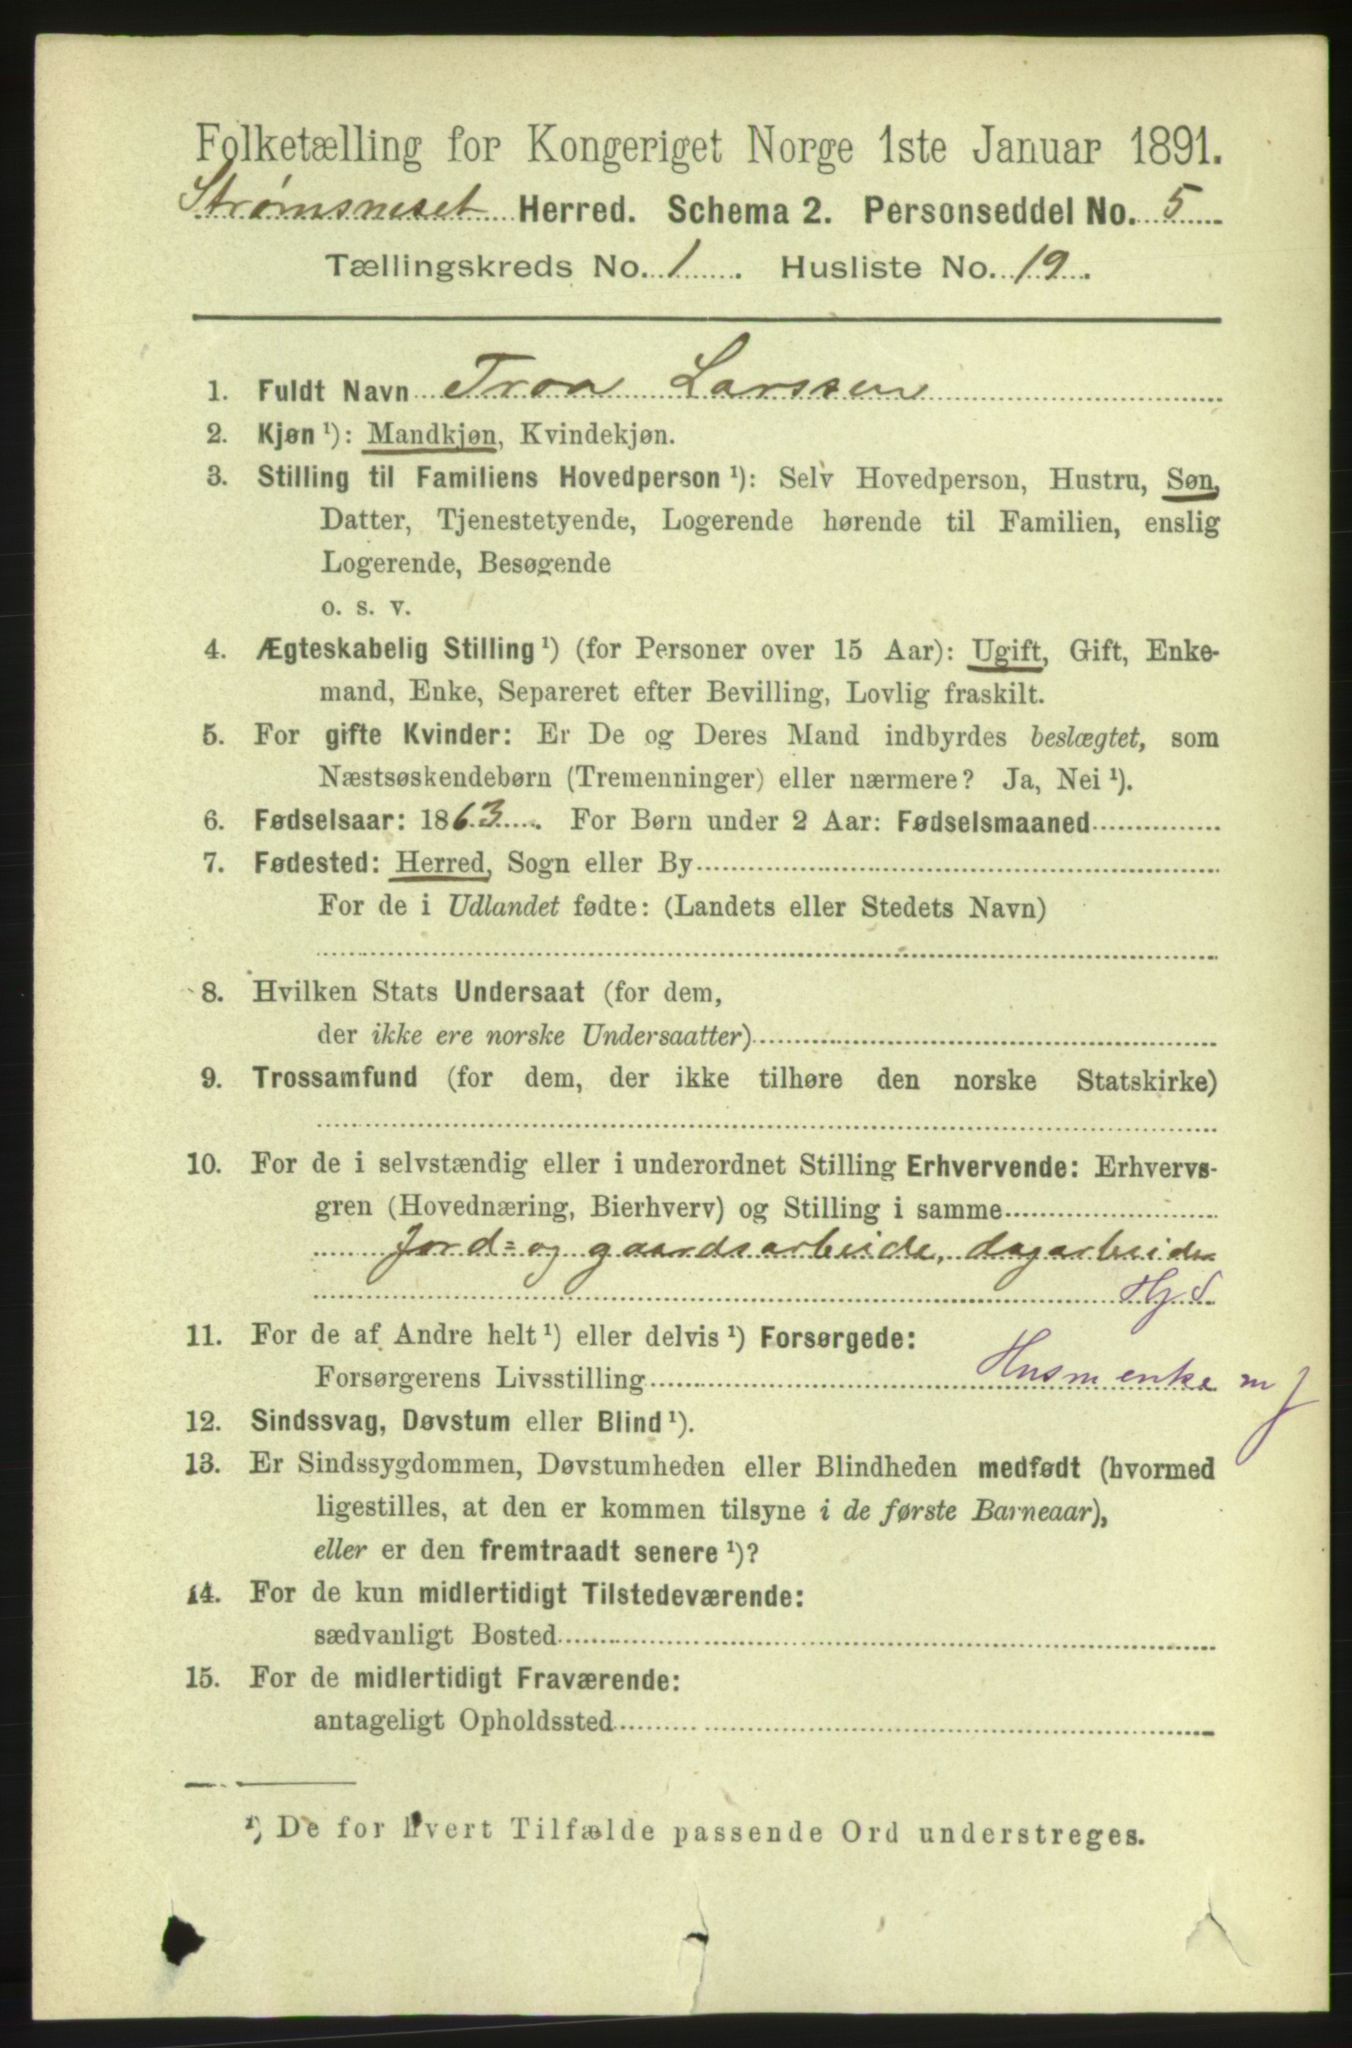 Folketælling for Kongeriget Norge 1ste Januar 1891.
Strømsneset Herred. Schema 2. Personseddel No. 5
Tællingskreds No. 1. Husliste No. 19.
1. Fuldt Navn Tron Larssen
2. Kjøn ¹): Mandkjøn, Kvindekjøn.
3. Stilling til Familiens Hovedperson ¹): Selv Hovedperson, Hustru, Søn,
Datter, Tjenestetyende, Logerende hørende til Familien, enslig
Logerende, Besøgende
o. s. v.
4. Ægteskabelig Stilling ¹) (for Personer over 15 Aar): Ugift, Gift, Enke-
mand, Enke, Separeret efter Bevilling, Lovlig fraskilt.
5. For gifte Kvinder: Er De og Deres Mand indbyrdes beslægtet, som
Næstsøskendebørn (Tremenninger) eller nærmere? Ja, Nei ¹).
6. Fødselsaar: 1863. For Børn under 2 Aar: Fødselsmaaned
7. Fødested: Herred, Sogn eller By
For de i Udlandet fødte: (Landets eller Stedets Navn)
8. Hvilken Stats Undersaat (for dem,
der ikke ere norske Undersaatter)
9. Trossamfund (for dem, der ikke tilhøre den norske Statskirke)
10. For de i selvstændig eller i underordnet Stilling Erhvervende: Erhvervs-
gren (Hovednæring, Bierhverv) og Stilling i samme
Jord- og gaardsarbeide, dagarbeider
Hj S.
11. For de af Andre helt ¹) eller delvis ¹) Forsørgede:
Forsørgerens Livsstilling Husm enke m J
12. Sindssvag, Døvstum eller Blind ¹).
13. Er Sindssygdommen, Døvstumheden eller Blindheden medfødt (hvormed
ligestilles, at den er kommen tilsyne i de første Barneaar),
eller er den fremtraadt senere ¹)?
14. For de kun midlertidigt Tilstedeværende:
sædvanligt Bosted
15. For de midlertidigt Fraværende:
antageligt Opholdssted
¹) De for hvert Tilfælde passende Ord understreges.